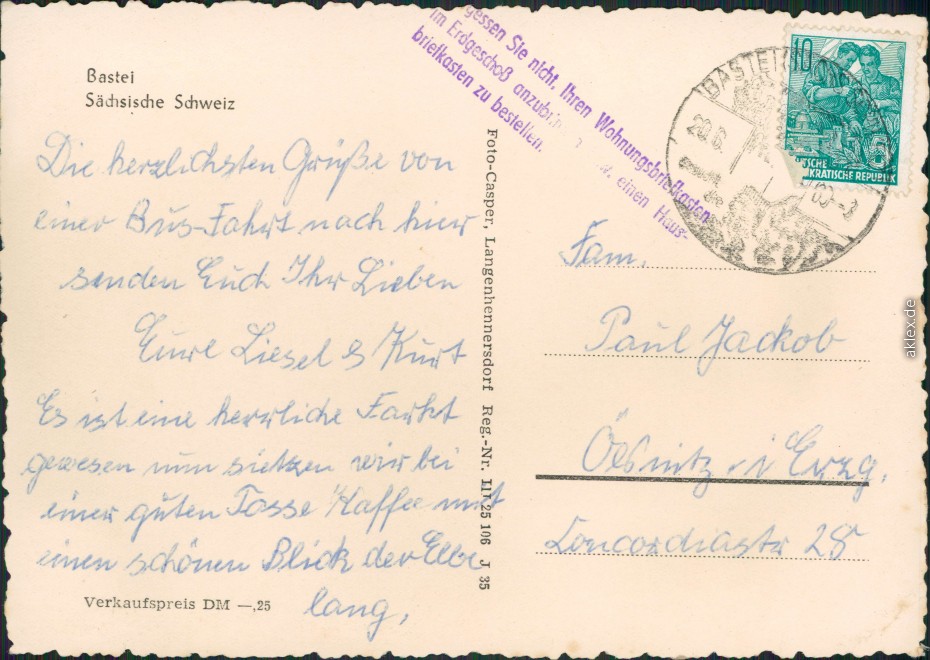 Bastei
Sächsische Schweiz
Die herzlichsten Grüße von
einer Bus-Fahrt nach hier
senden Euch Ihr Lieben
Eure Liesel & Kurt
Es ist eine herrliche Farht
gewesen nun sietzen wir bei
einer guten Tasse Kaffee mit
einen schönen Blick der Elbe
lang,
Verkaufspreis DM —,25
Foto-Casper, Langenhennersdorf Reg.-Nr. III 25 106 J 35
gessen Sie nicht, Ihren Wohnungsbriefkasten
im Erdgeschoß anzubri einen Haus-
briefkasten zu bestellen.
BASTEI
20.6.
10
DEUTSCHE
KRATISCHE REPUBLIK
Fam.
Paul Jackob
Ölsnitz i Erzg.
Concordiastr 28
aklex.de